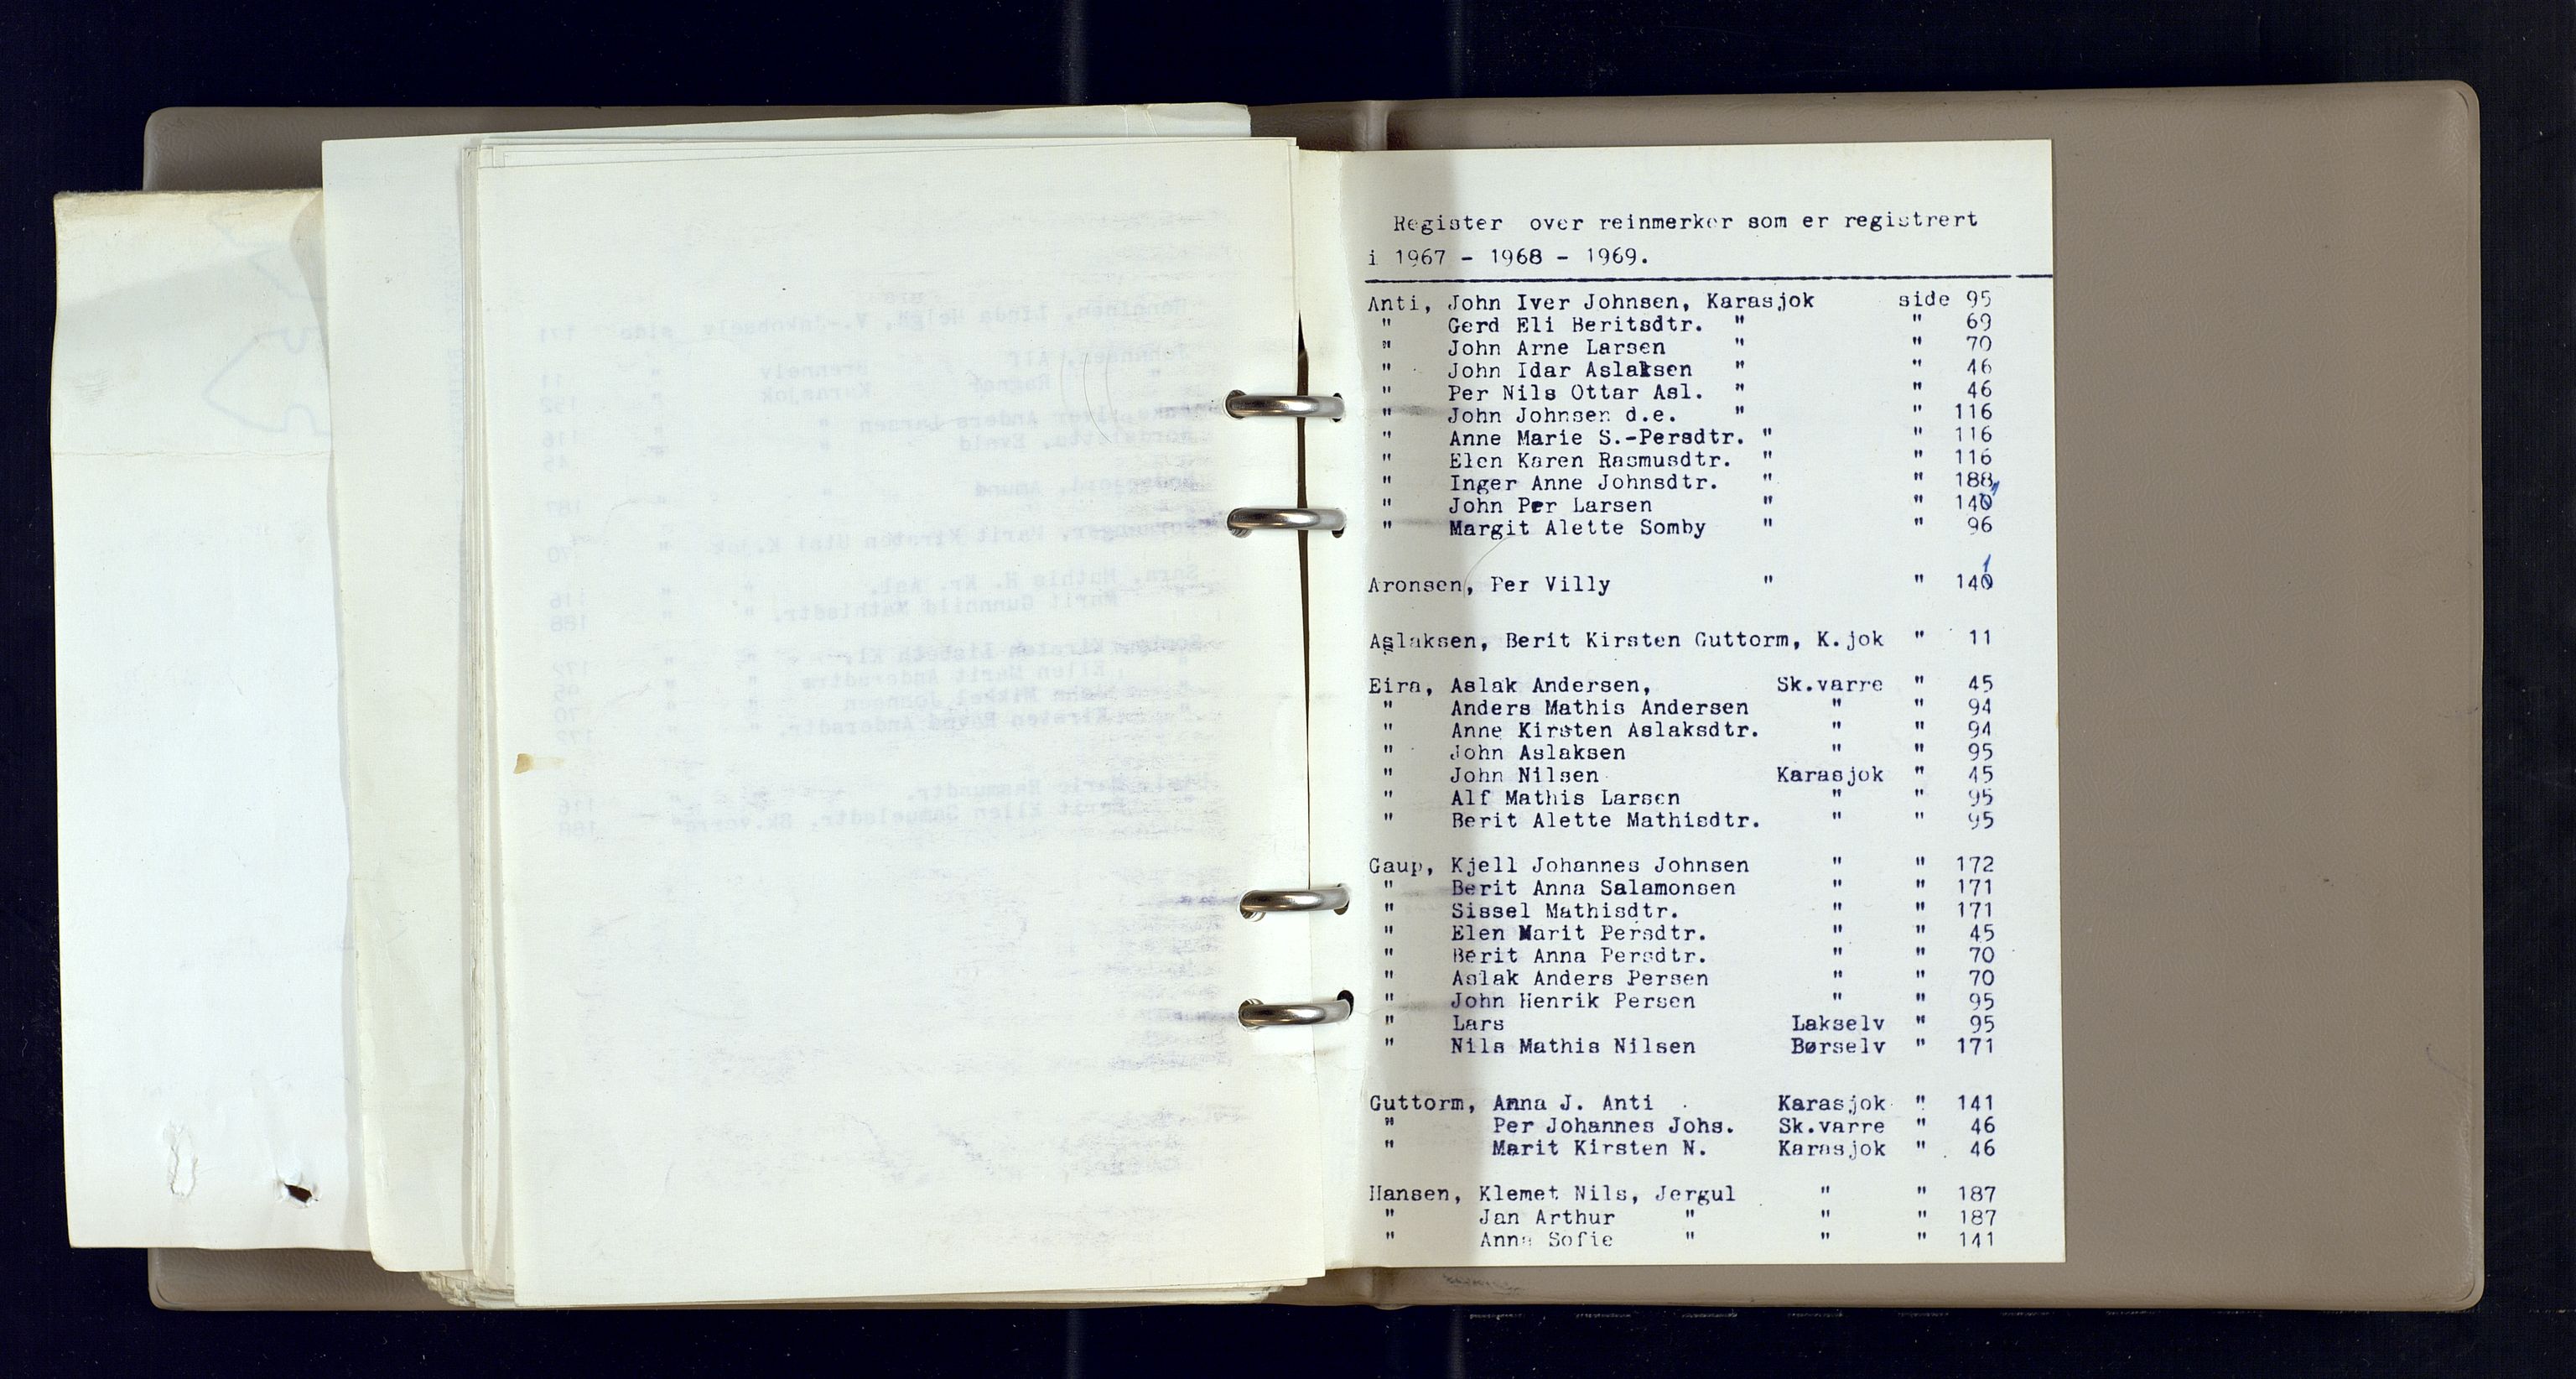 Register over reinmerker som er registrert
i 1967 - 1968 - 1969.
Anti, John Iver Johnsen, Karasjok side 95
" Gerd Eli Beritsdtr. " " 69
" John Arne Larsen " " 70
" John Idar Aslaksen " " 46
" Per Nils Ottar Asl. " " 46
" John Johnsen d.e. " " 116
" Anne Marie S.-Persdtr. " " 116
" Elen Karen Rasmusdtr. " " 116
" Inger Anne Johnsdtr. " " 188
" John Per Larsen " " 141
" Margit Alette Somby " " 96
Aronsen, Per Villy " " 141
Aslaksen, Berit Kirsten Guttorm, K.jok " 11
Eira, Aslak Andersen, Sk.varre " 45
" Anders Mathis Andersen " " 94
" Anne Kirsten Aslaksdtr. " " 94
" John Aslaksen " " 95
" John Nilsen Karasjok " 45
" Alf Mathis Larsen " " 95
" Berit Alette Mathisdtr. " " 95
Gaup, Kjell Johannes Johnsen " " 172
" Berit Anna Salamonsen " " 171
" Sissel Mathisdtr. " " 171
" Elen Marit Persdtr. " " 45
" Berit Anna Persdtr. " " 70
" Aslak Anders Persen " " 70
" John Henrik Persen " " 95
" Lars Lakselv " 95
" Nils Mathis Nilsen Børselv " 171
Guttorm, Anna J. Anti Karasjok " 141
" Per Johannes Johs. Sk.varre " 46
" Marit Kirsten N. Karasjok " 46
Hansen, Klemet Nils, Jergul " " 187
" Jan Arthur " " " 187
" Anna Sofie " " " 141